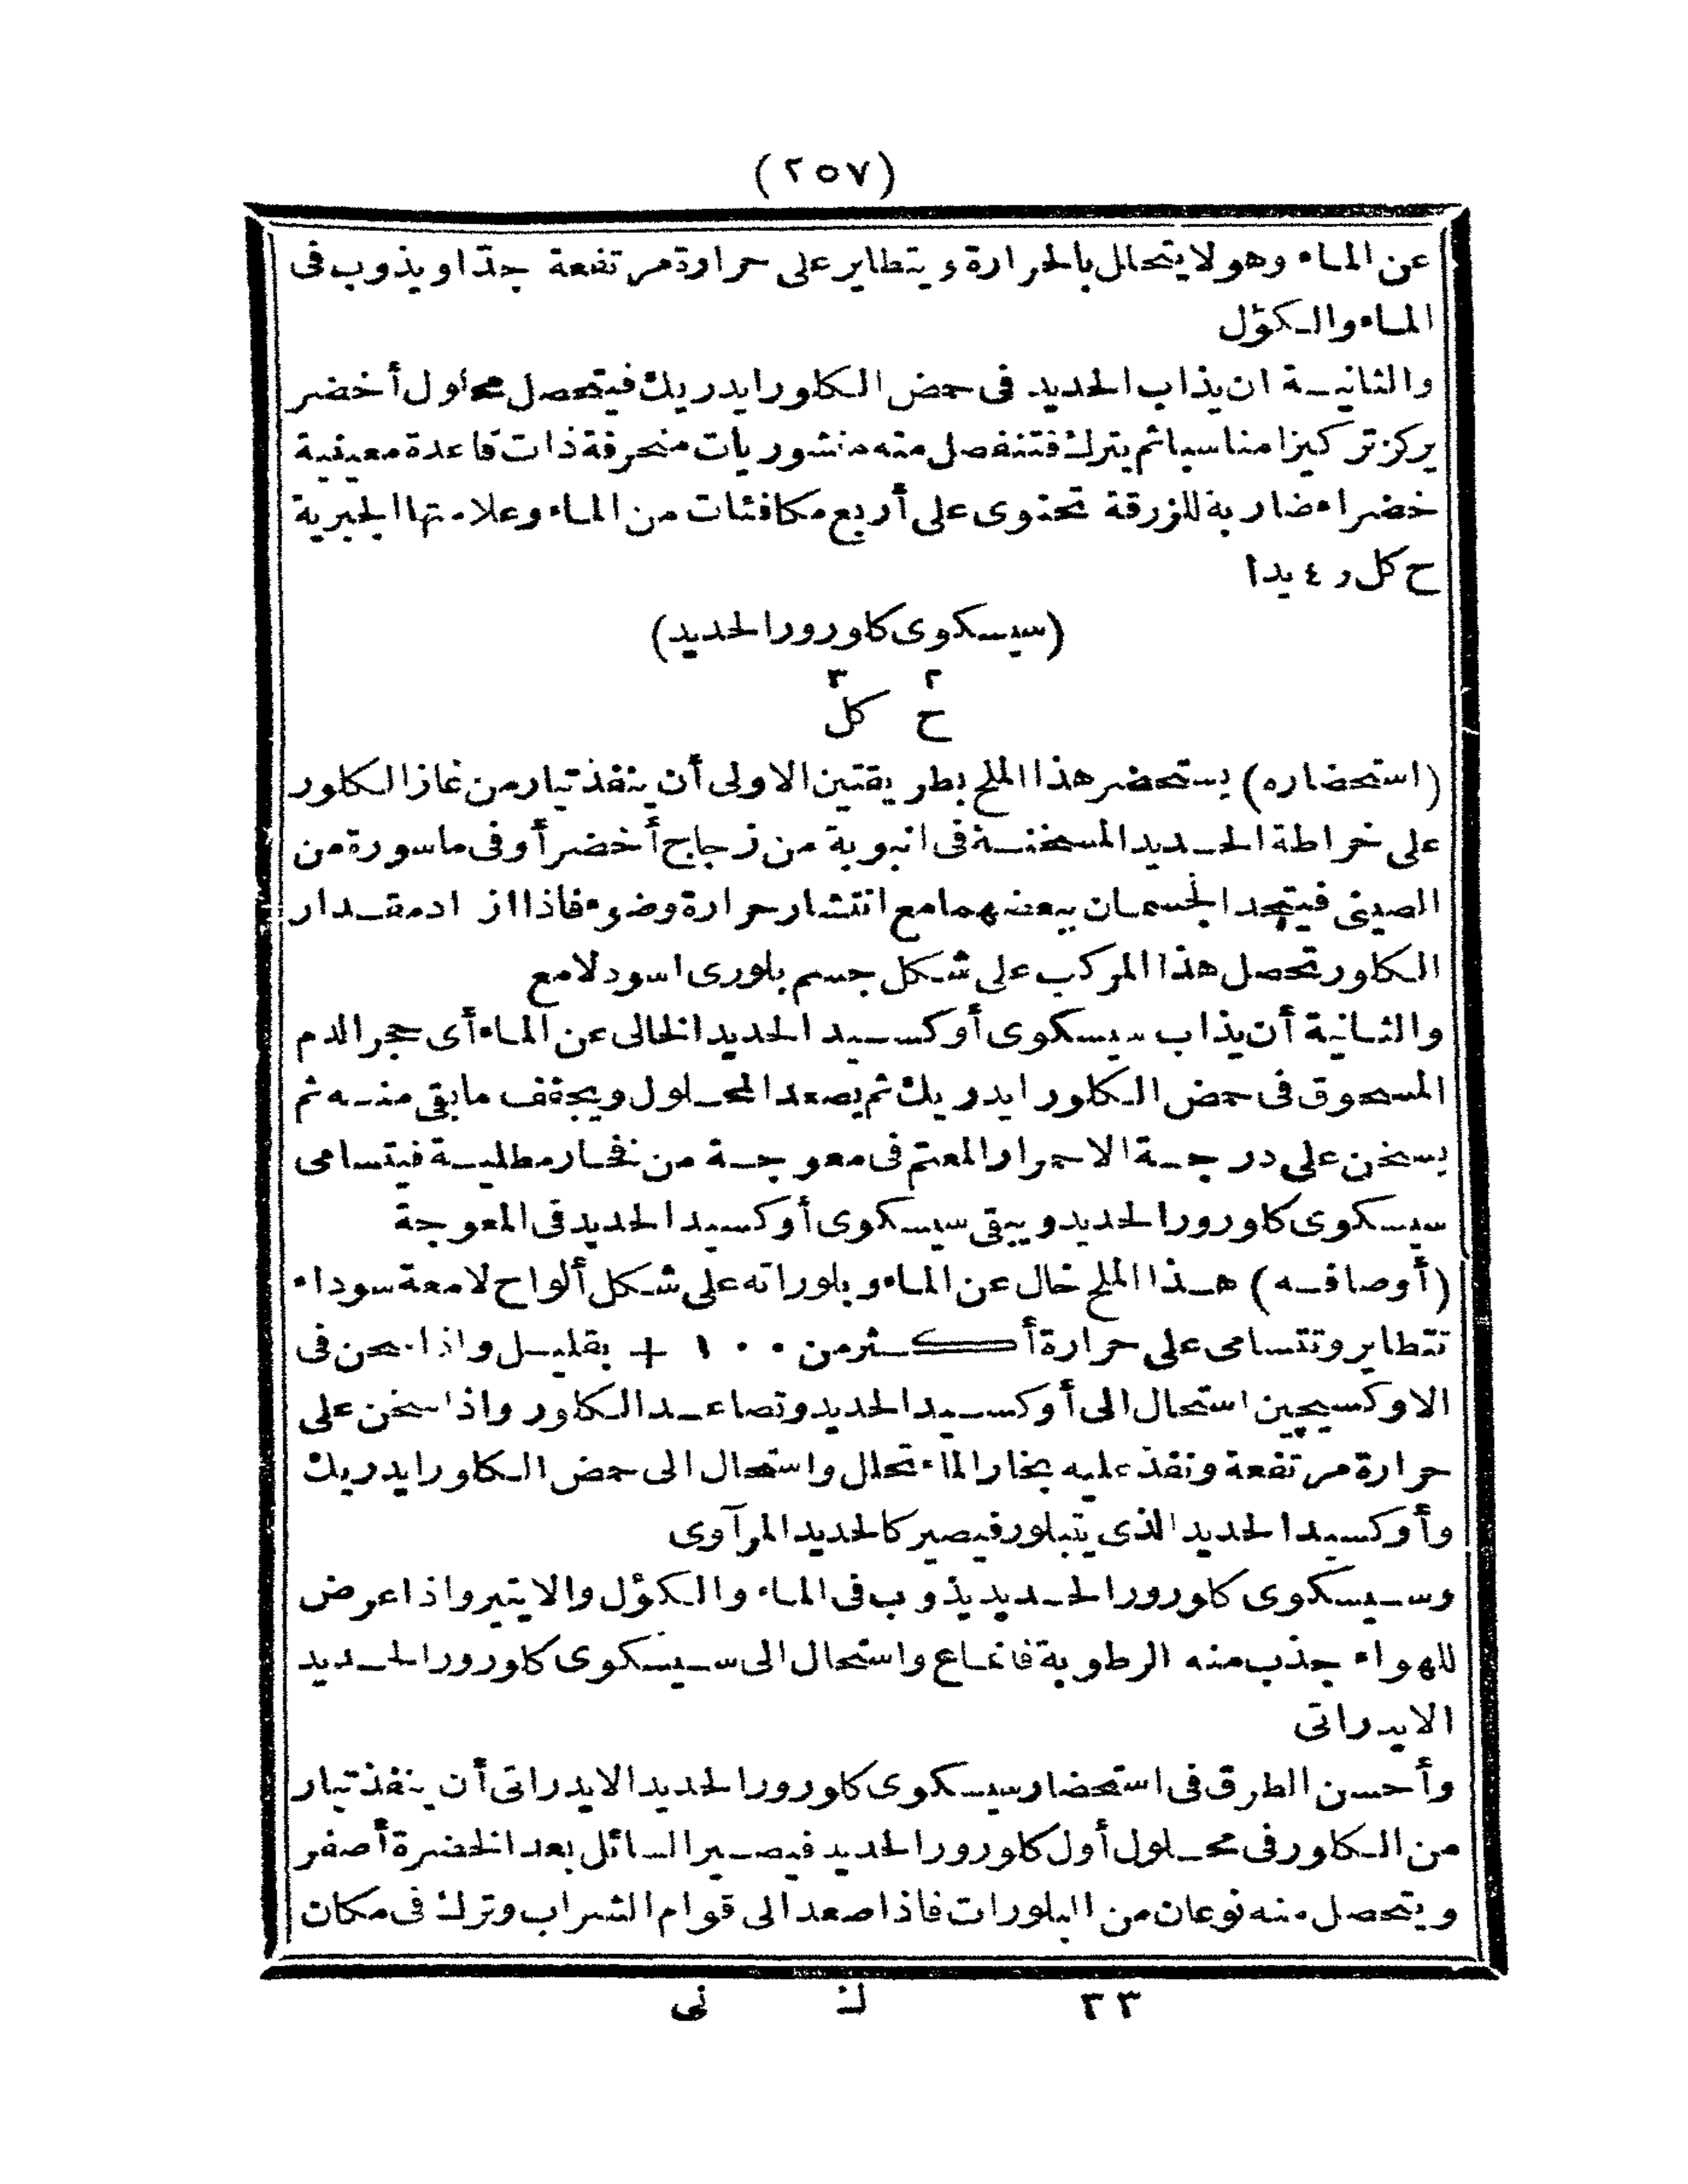 (٢٥٧)
عن الماء وهو لا يتحلل بالحرارة ويتطاير على حرارة مرتفعة جدّا ويذوب فى
الماء والكؤل
والثانية ان يذاب الحديد فى حمض الكلورايدريك فيتحصل محلول أخضر
يركز تركيزا مناسبا ثم يترك فتنفصل منه منشوريات منحرفة ذات قاعدة معينية
خضراء ضاربة للزرقة تحتوى على أربع مكافئات من الماء وعلامتها الجبرية
ح كل ر ٤ يدا
(سيسكوى كلورور الحديد)
٢ ٣
ح كل
(استحضاره) يستحضر هذا الملح بطريقتين الاولى أن ينفذ تيار من غاز الكلور
على خراطة الحديد المسخنة فى انبوبة من زجاج أخضر أو فى ماسورة من
الصينى فيتحد الجسمان ببعضهما مع انتشار حرارة وضوء فاذا ازداد مقدار
الكلور تحصل هذا المركب على شكل جسم بلورى اسود لامع
والثانية أن يذاب سيسكوى أوكسيد الحديد الخالى عن الماء أى حجر الدم
المسحوق فى حمض الكلورايدريك ثم يصعد المحلول ويجفف ما بقى منه ثم
يسخن على درجة الاحمرار المعتم فى معوجة من نفخار مطلية فيتسامى
سيسكوى كلورور الحديد ويبقى سيسكوى أوكسيد الحديد فى المعوجة
(أوصافه) هذا الملح خال عن الماء وبلوراته على شكل ألواح لامعة سوداء
تتطاير وتتسامى على حرارة أكثر من ١٠٠ + بقليل واذا سخن فى
الاوكسيچين استحال الى أوكسيد الحديد وتصاعد الكلور واذا سخن على
حرارة مرتفعة ونفذ عليه بخار الماء تحلل واستحال الى حمض الكلورايدريك
وأوكسيد الحديد الذى يتبلور فيصير كالحديد المرآوى
وسيسكوى كلورور الحديد يذوب فى الماء والكؤل والايتير واذا عرض
للهواء جذب منه الرطوبة فانماع واستحال الى سيسكوى كلورور الحديد
الايدراتى
وأحسن الطرق فى استحضار سيسكوى كلورور الحديد الايدراتى أن ينفذ تيار
من الكلور فى محلول أول كلورور الحديد فيصير السائل بعد الخضرة أصفر
ويتحصل منه نوعان من البلورات فاذا صعد الى قوام الشراب وترك فى مكان
٣٣ ك نى